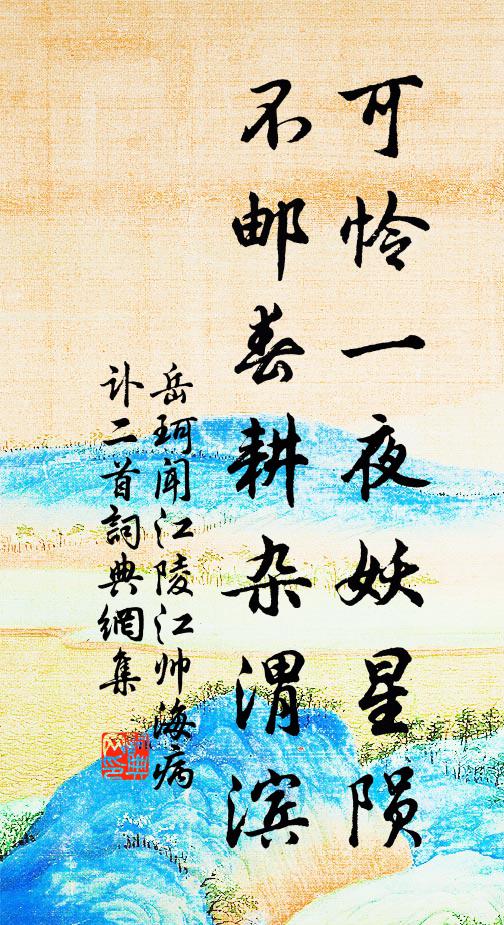 可怜一夜妖星陨
不邮春耕杂渭滨
岳珂闻江陵江帅海病
讣二首詞典網集